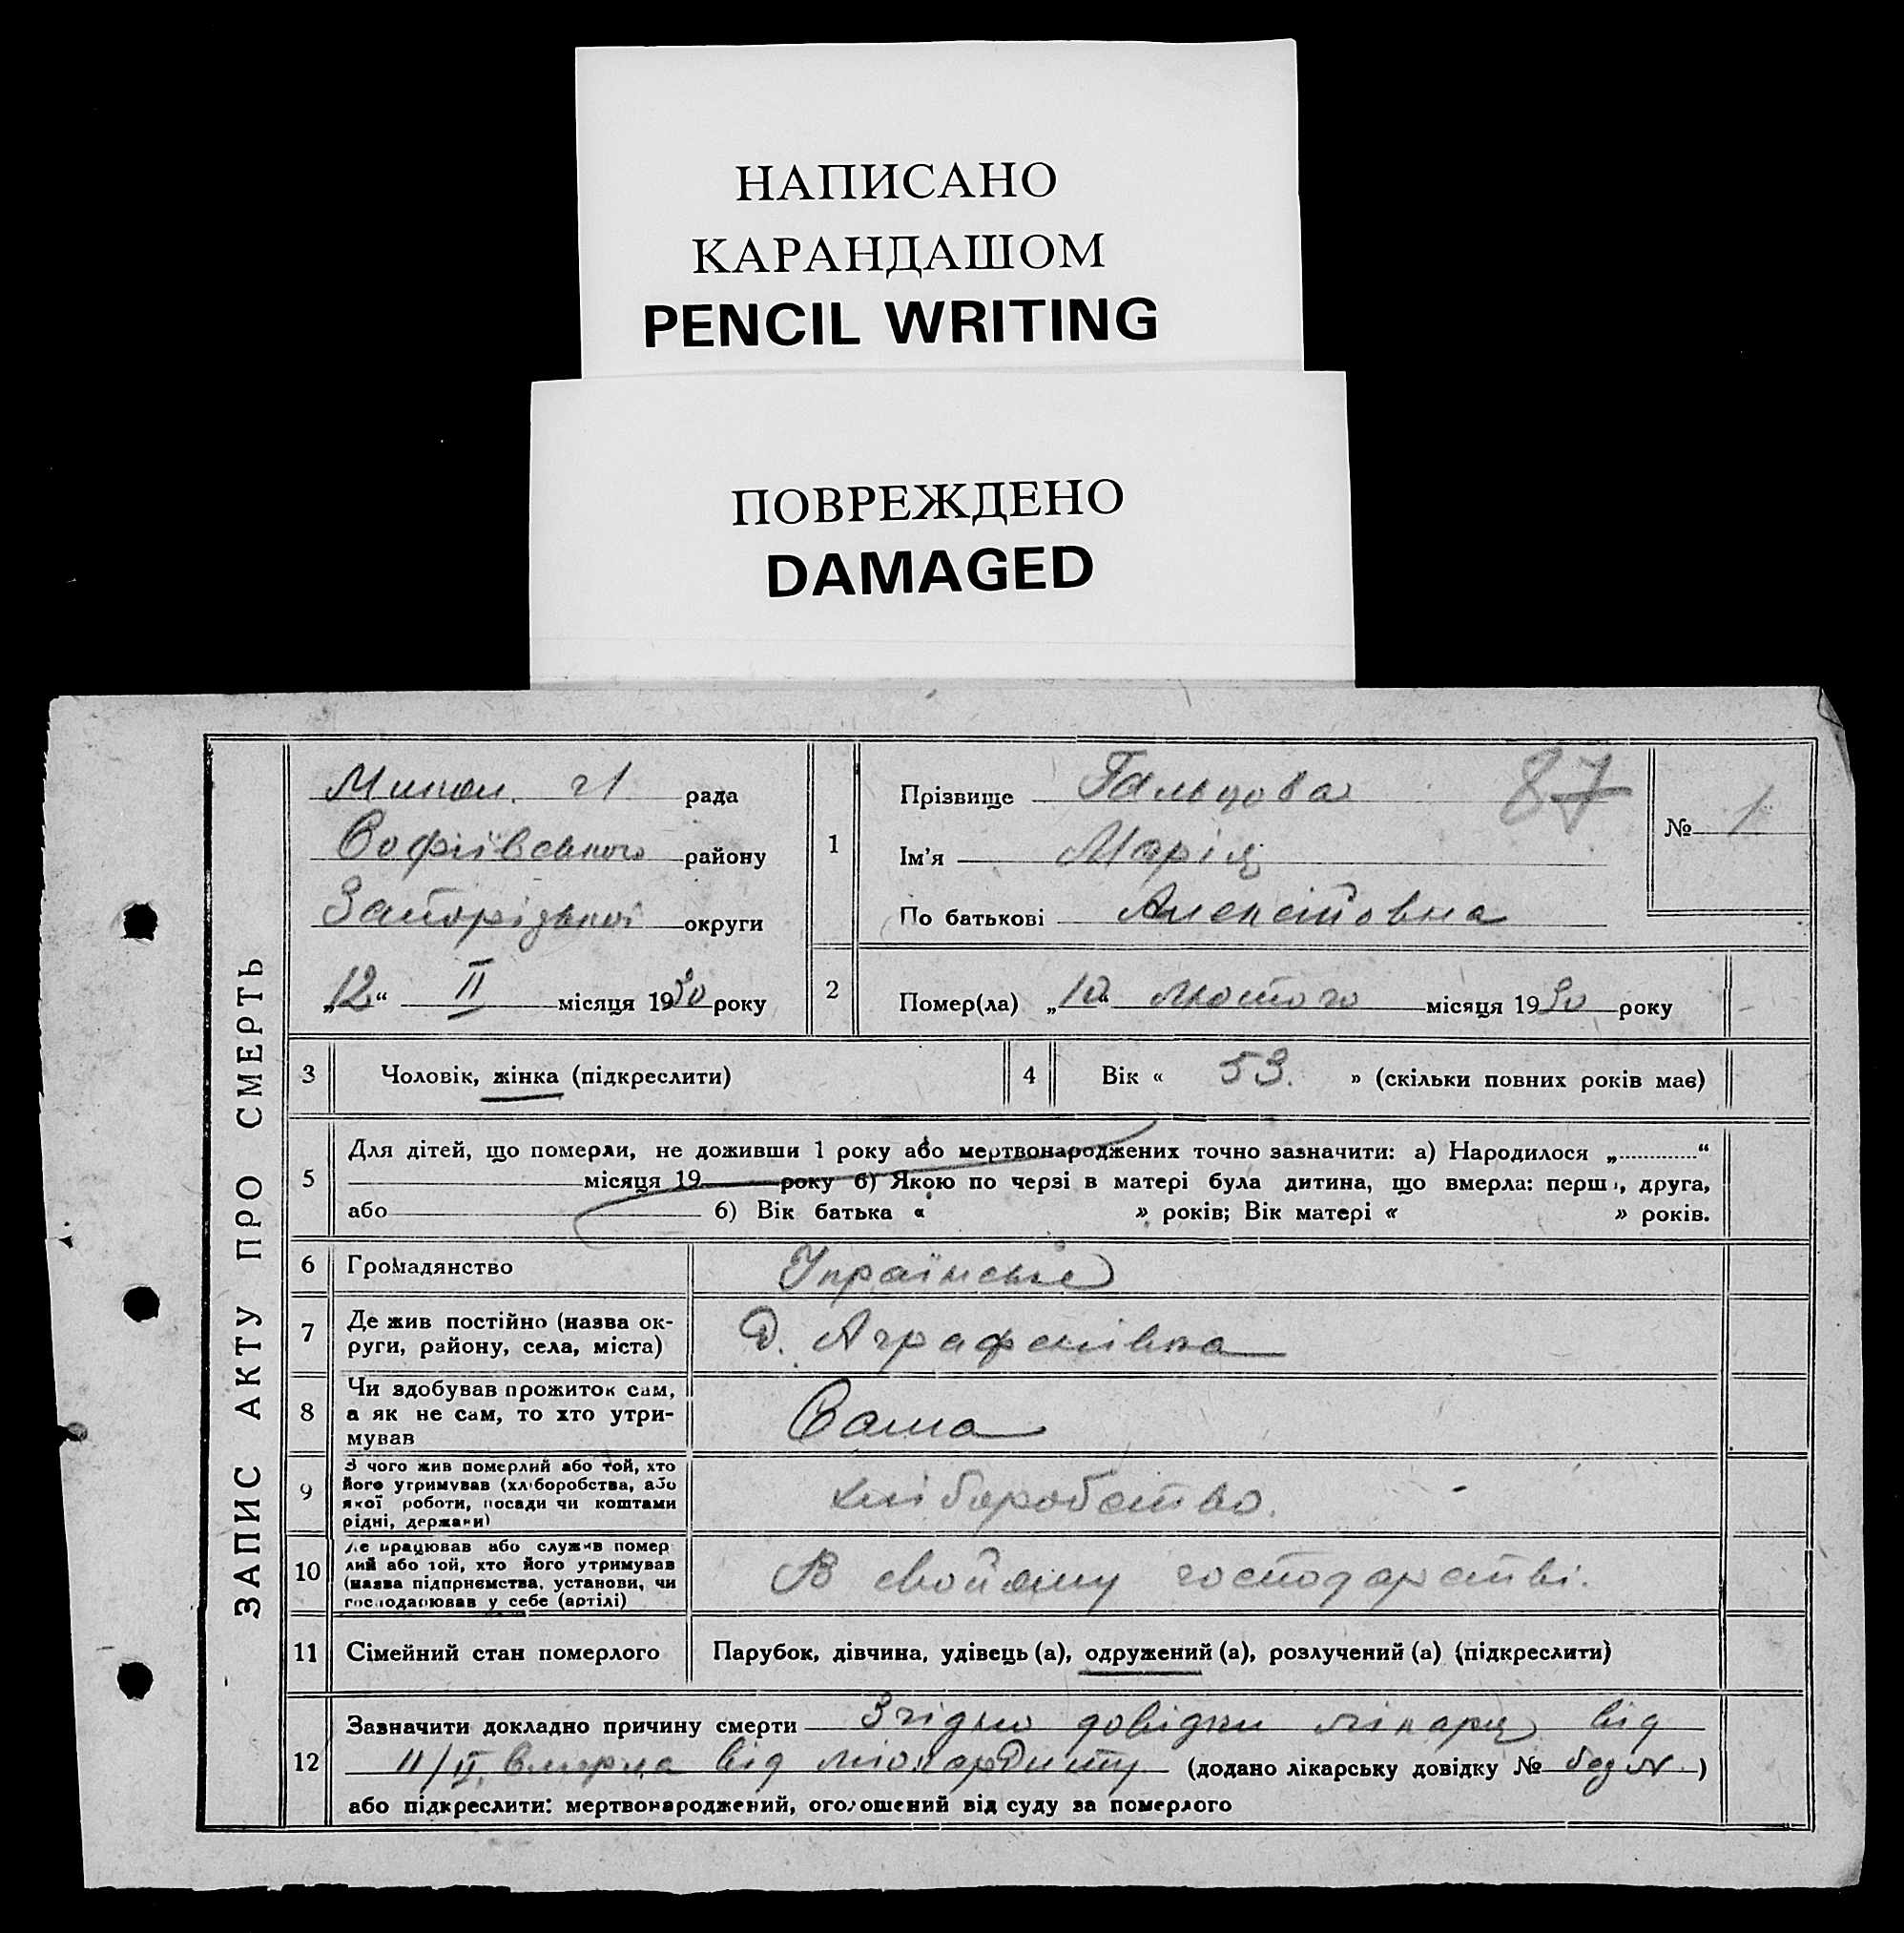 НАПИСАНО
КАРАНДАШОМ
PENCIL WRITING
ПОВРЕЖДЕНО
DAMAGED
ЗАПИС АКТУ ПРО СМЕРТЬ
рада
Софіївського району
Запорізької округи
„12“ II місяця 1930 року
1
Прізвище Гальцова 87
Ім’я Марія
По батькові Алексійовна
№ 1
2
Помер(ла) „10 Лютого місяця 1930 року
3 Чоловік, жінка (підкреслити)
4 Вік « 53. » (скільки повних років має)
5
Для дітей, що померли, не доживши 1 року або мертвонароджених точно зазначити: а) Народилося „............“
місяця 19 року б) Якою по черзі в матері була дитина, що вмерла: перша, друга,
або б) Вік батька « » років; Вік матері « » років.
6 Громадянство Українське
7
Де жив постійно (назва ок-
руги, району, села, міста)
Аграфенівка
8
Чи здобував прожиток сам,
а як не сам, то хто утри-
мував
Сама
9
З чого жив померлий або той, хто
його утримував (хліборобства, або
якої роботи, посади чи коштами
рідні, держави)
хліборобство.
10
Де працював або служив помер
лий або той, хто його утримував
(назва підприємства, установи, чи
господарював у себе (артілі)
В свойому господарстві.
11 Сімейний стан померлого Парубок, дівчина, удівець (а), одружений (а), розлучений (а) (підкреслити)
12
Зазначити докладно причину смерти Згідно довідки лікаря від
11/II. вмерла від міокардиту (додано лікарську довідку № без №)
або підкреслити: мертвонароджений, оголошений від суду за померлого